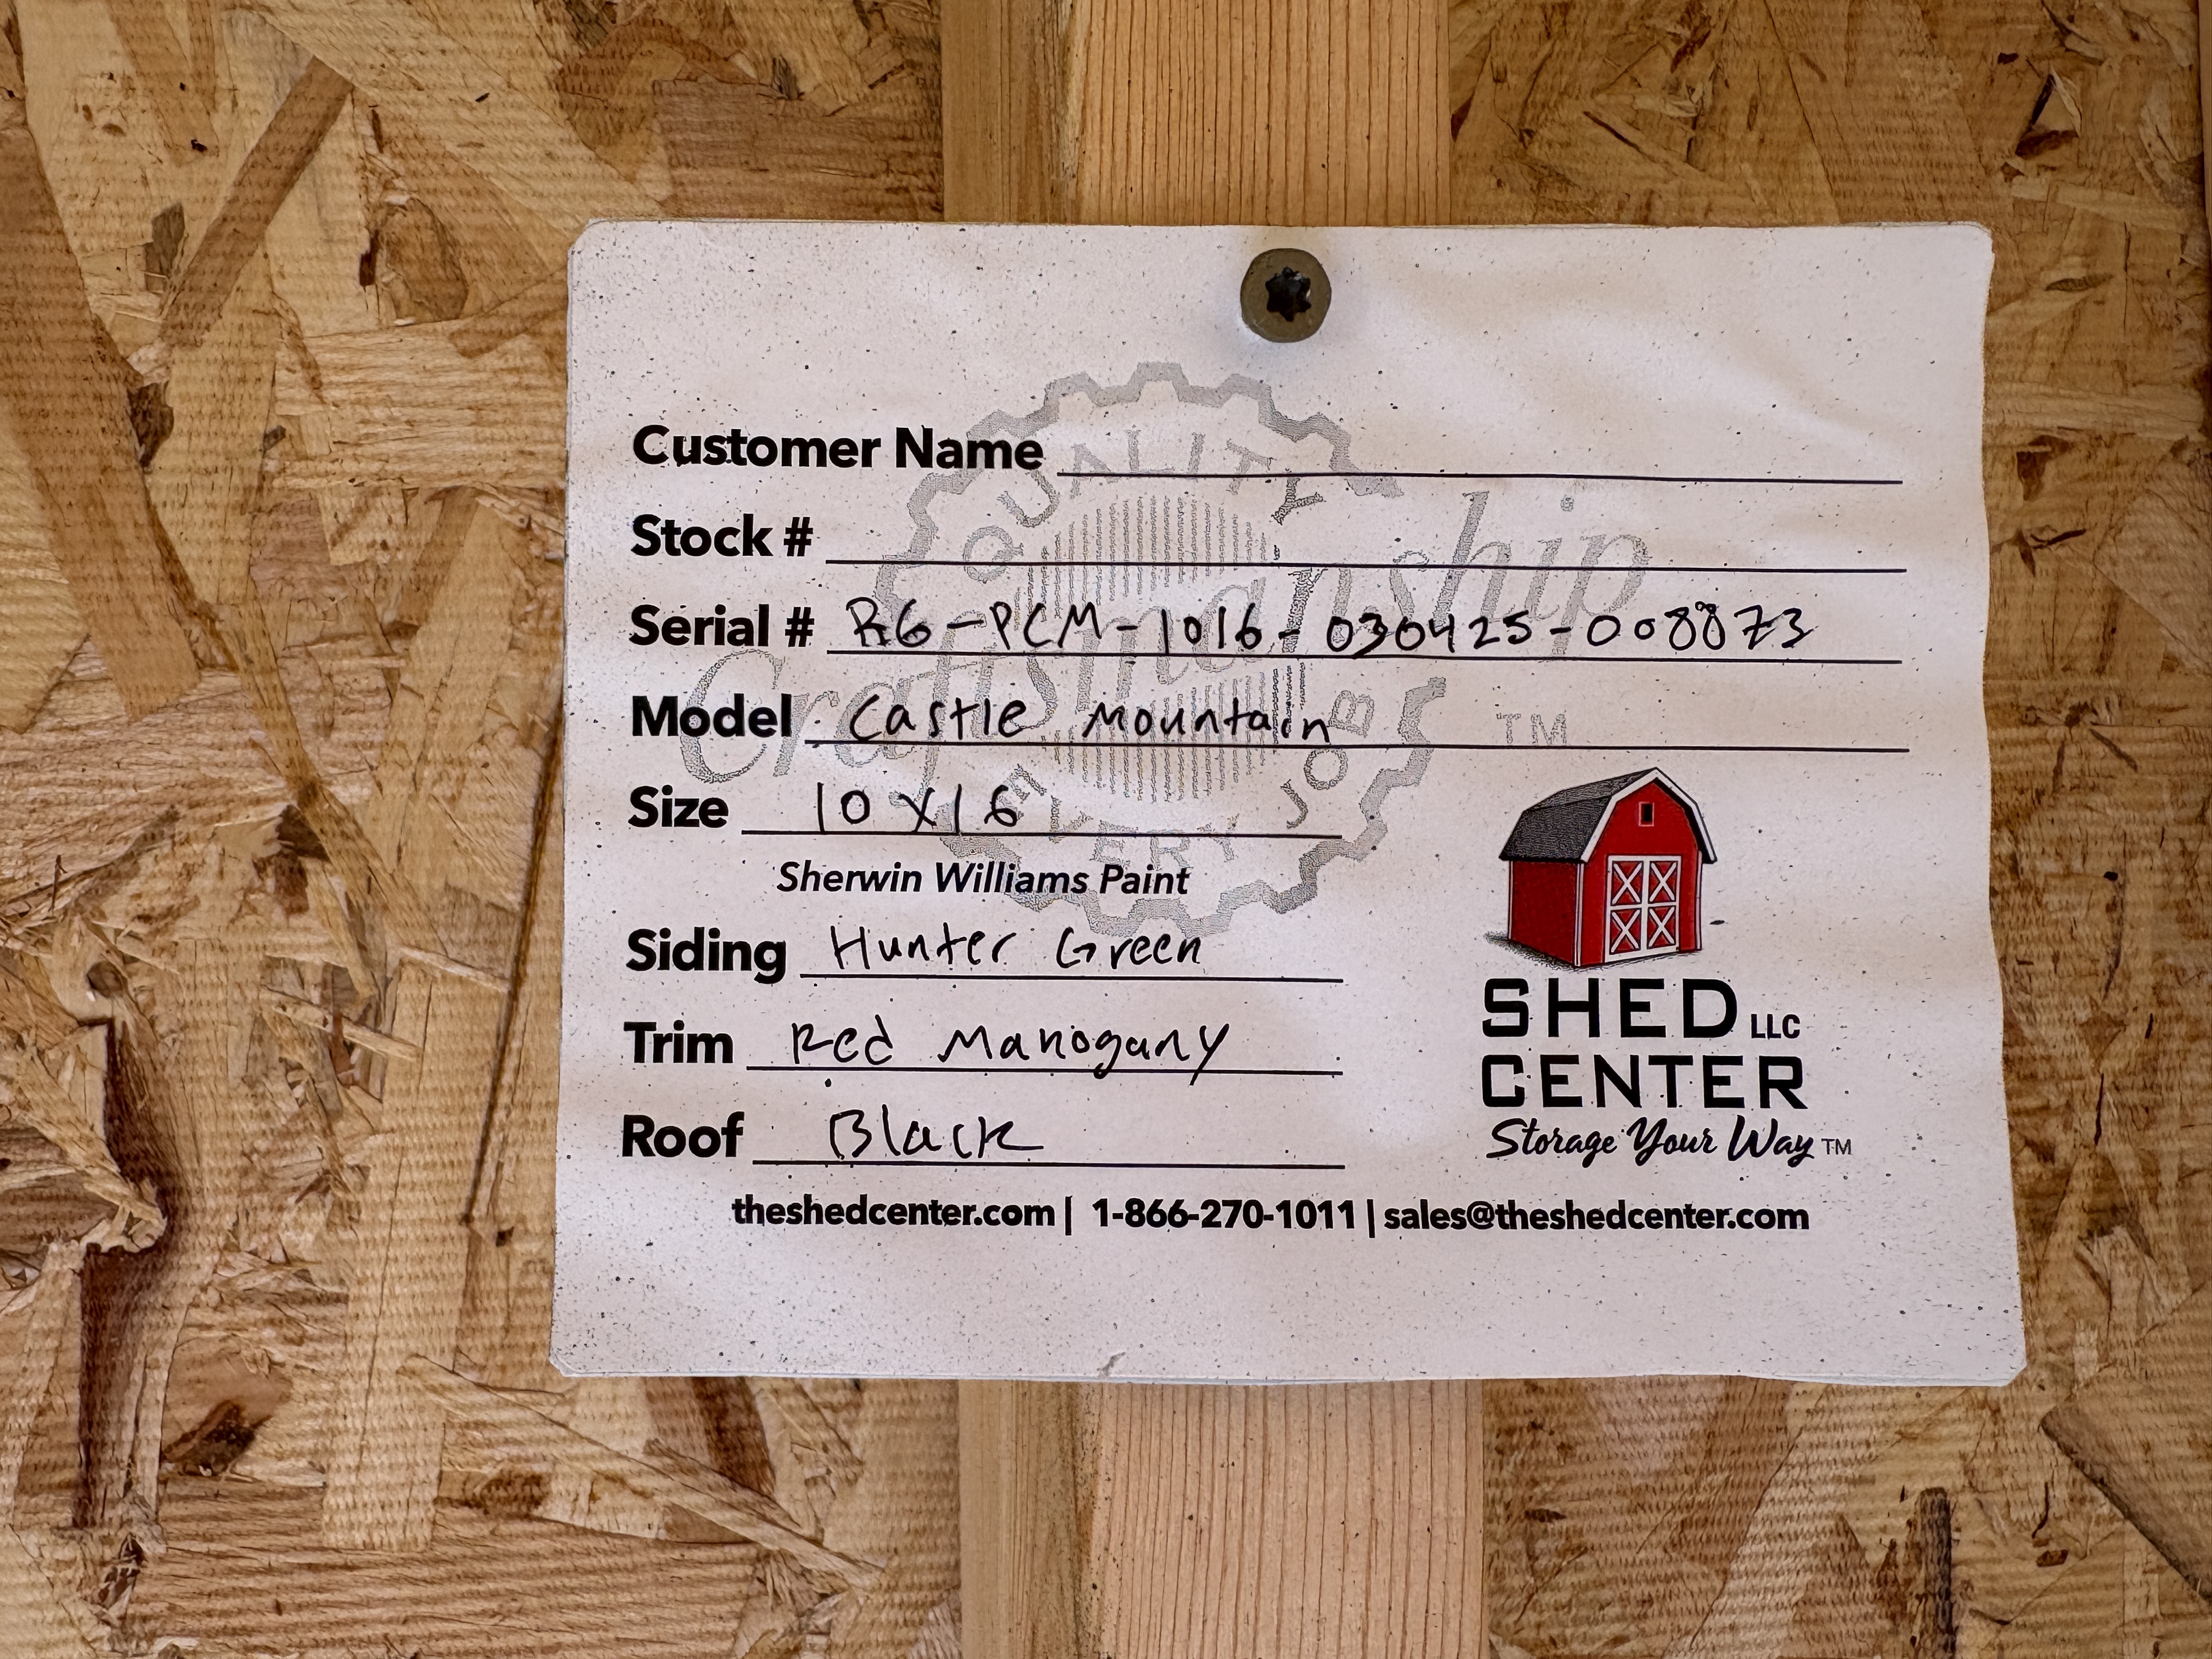 Customer Name
Stock #
Serial # RG-PCM-1016-030425-008873
Model Castle Mountain
Size 10x16
Sherwin Williams Paint
Siding Hunter Green
Trim Red Mahogany
Roof Black
QUALITY
Craftsmanship TM
EVERY JOB
SHED LLC
CENTER
Storage Your Way TM
theshedcenter.com | 1-866-270-1011 | sales@theshedcenter.com